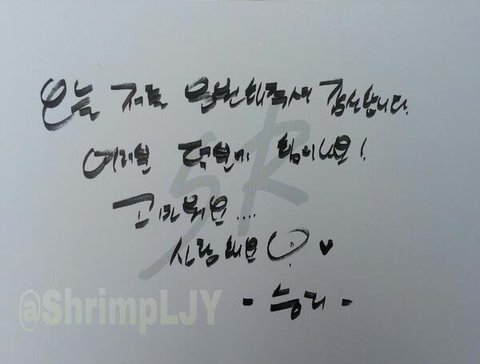 오늘 저를 응원해주셔서 감사합니다.
여러분 덕분에 힘이나요!
고마워요....
사랑해요 ♥
- 승리 -
SR
@ShrimpLJY